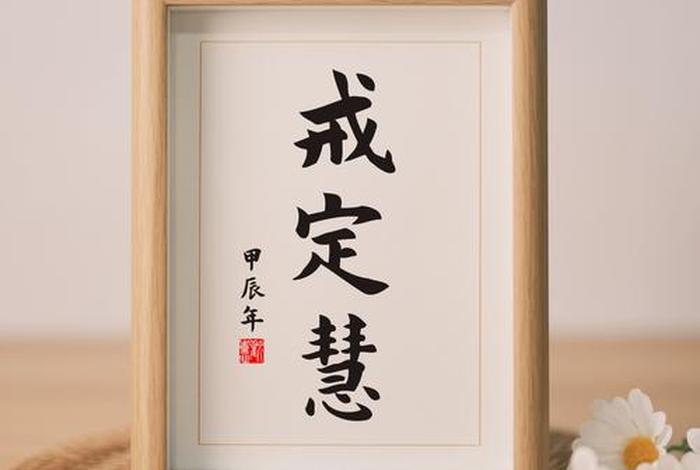 戒定慧
甲辰年